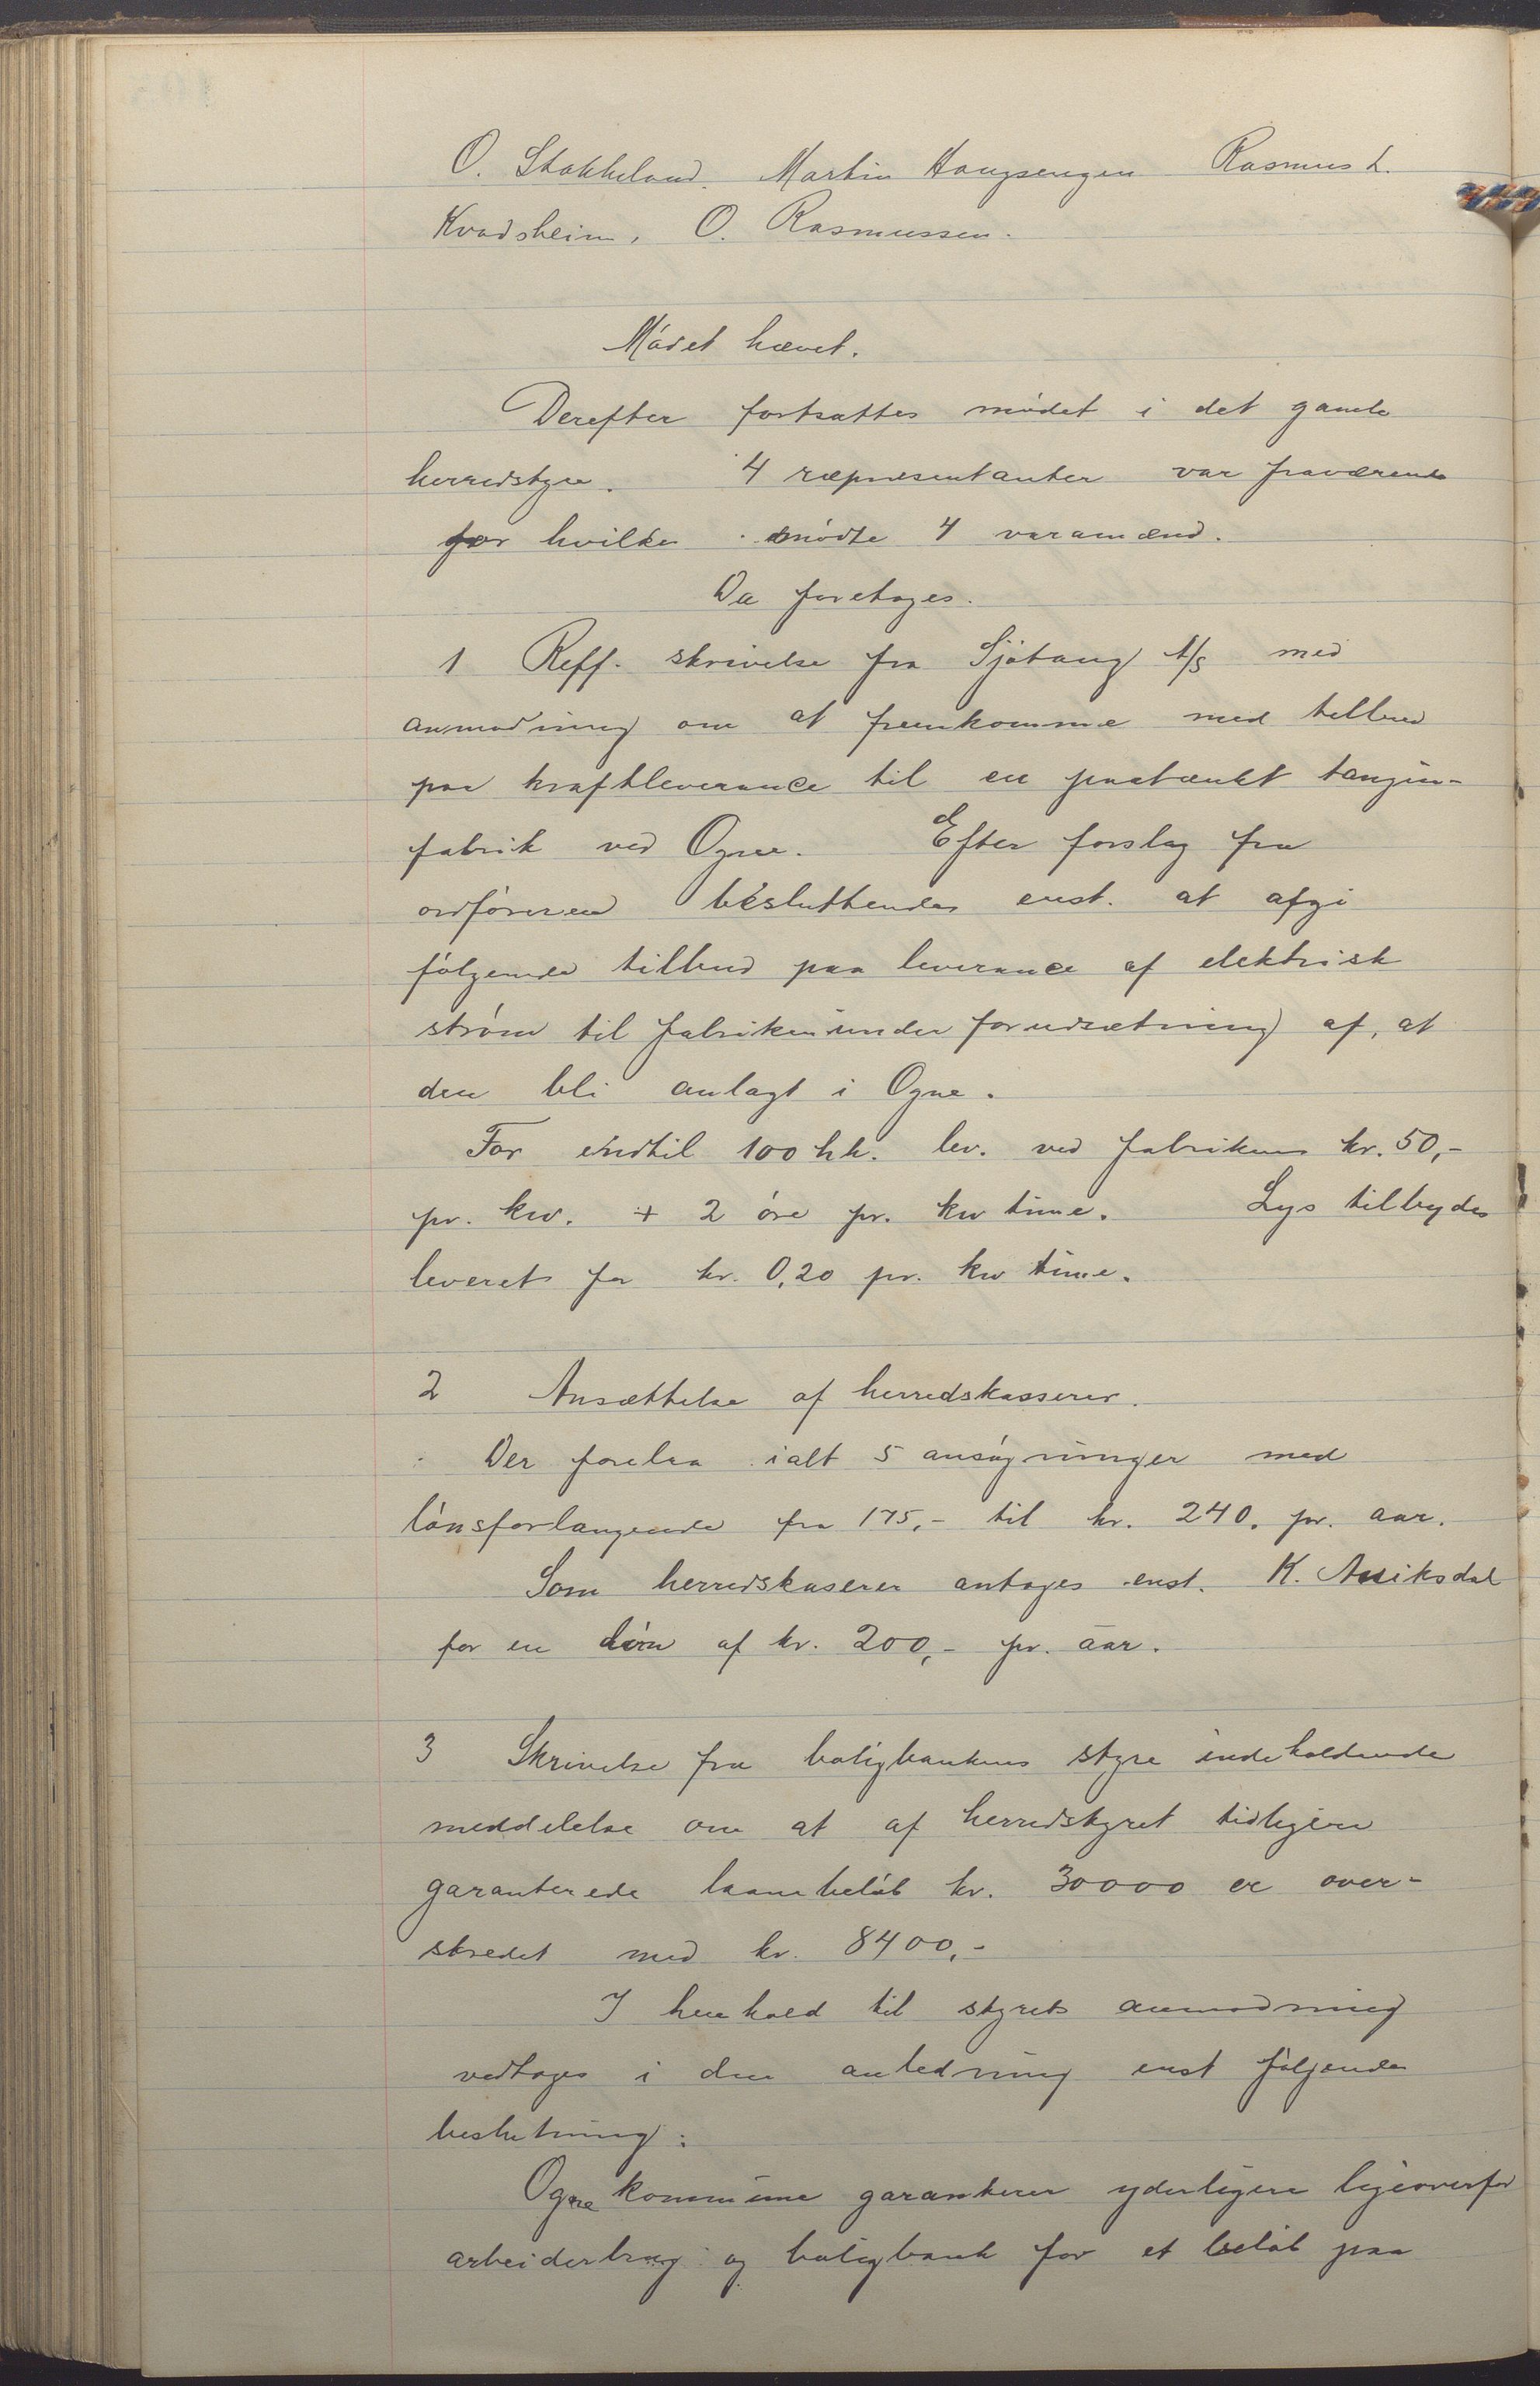 O. Stokkeland. Martin Haugsengen Rasmus L.
Kvadsheim, O. Rasmussen.
Mødet hævet.
Derefter fortsattes mødet i det gamle
herredstyre. 4 ræpresentanter var fraværende
for hvilke mødte 4 varamænd.
Da foretoges.
1 Reff. skrivelse fra Sjötang A/S med
anmodning om at fremkomme med tilbud
paa kraftleverance til en paatænkt tangin-
fabrik ved Ogne. Efter forslag fra
ordføreren besluttendes enst. at afgi
følgende tilbud paa leverance af elektrisk
strøm til fabriken under forudsætning af, at
den bli anlagt i Ogne.
For indtil 100 hk. lev. ved fabriken kr. 50,-
pr. kw. + 2 øre pr. kw time. Lys tilbydes
leveret for kr. 0,20 pr. kw time.
2 Ansættelse af herredskasserer.
Der forelaa ialt 5 ansøgninger med
lønsforlangende fra 175,- til kr. 240. pr. aar.
Som herredskaserer antages enst. K. Auiksdal
for en løn af kr. 200,- pr. aar.
3 Skrivelse fra boligbankens styre indeholdende
meddelelse om at af herredstyret tidligere
garanterede laanebeløb kr. 30000 er over-
skredet med kr. 8400,-
I henhold til styrets anmodning
vedtages i den anledning enst følgende
beslutning:
Ogne kommune garanterer yderligere ligeoverfor
arbeiderbrug og boligbank for et beløb paa